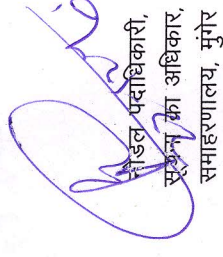 नोडल पदाधिकारी,
सूचना का अधिकार,
समाहरणालय, मुंगेर